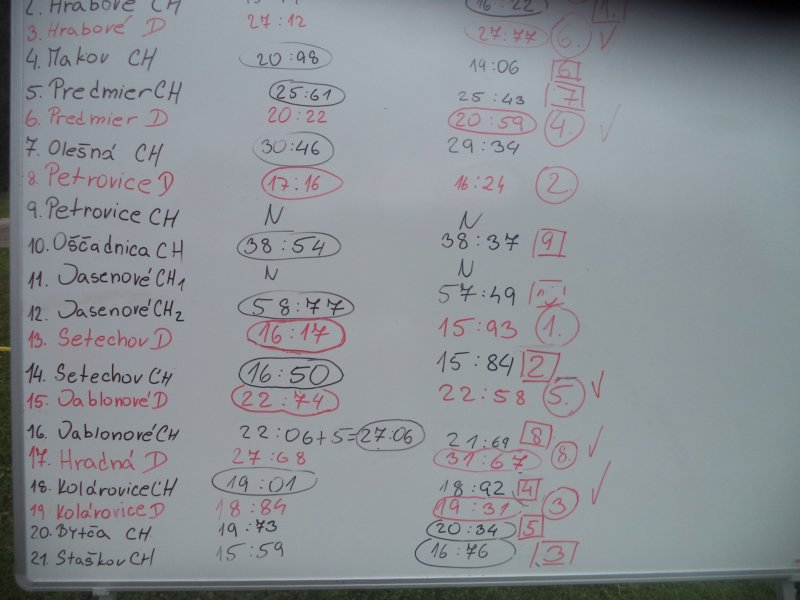 2. Hrabové CH 16:22 1.
3. Hrabové D 27:12 27:77 6.
4. Makov CH 20:98 19:06 6
5. Predmier CH 25:61 25:43 7
6. Predmier D 20:22 20:59 4.
7. Olešná CH 30:46 29:34
8. Petrovice D 17:16 16:24 2.
9. Petrovice CH N N
10. Oščadnica CH 38:54 38:37 9
11. Jasenové CH1 N N
12. Jasenové CH2 58:77 57:49
13. Setechov D 16:17 15:93 1.
14. Setechov CH 16:50 15:84 2
15. Jablonové D 22:74 22:58 5.
16. Jablonové CH 22:06+5=27:06 21:69 8
17. Hradná D 27:68 31:67 8.
18. Kolárovice CH 19:01 18:92 4
19 Kolárovice D 18:84 19:31 3
20. Bytča CH 19:73 20:34 5
21. Staškov CH 15:59 16:76 3